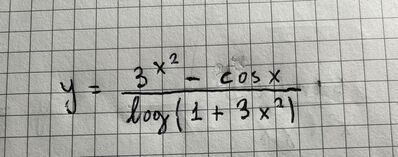 y = \frac{3^{x^2} - cos x}{log(1 + 3x^2)}